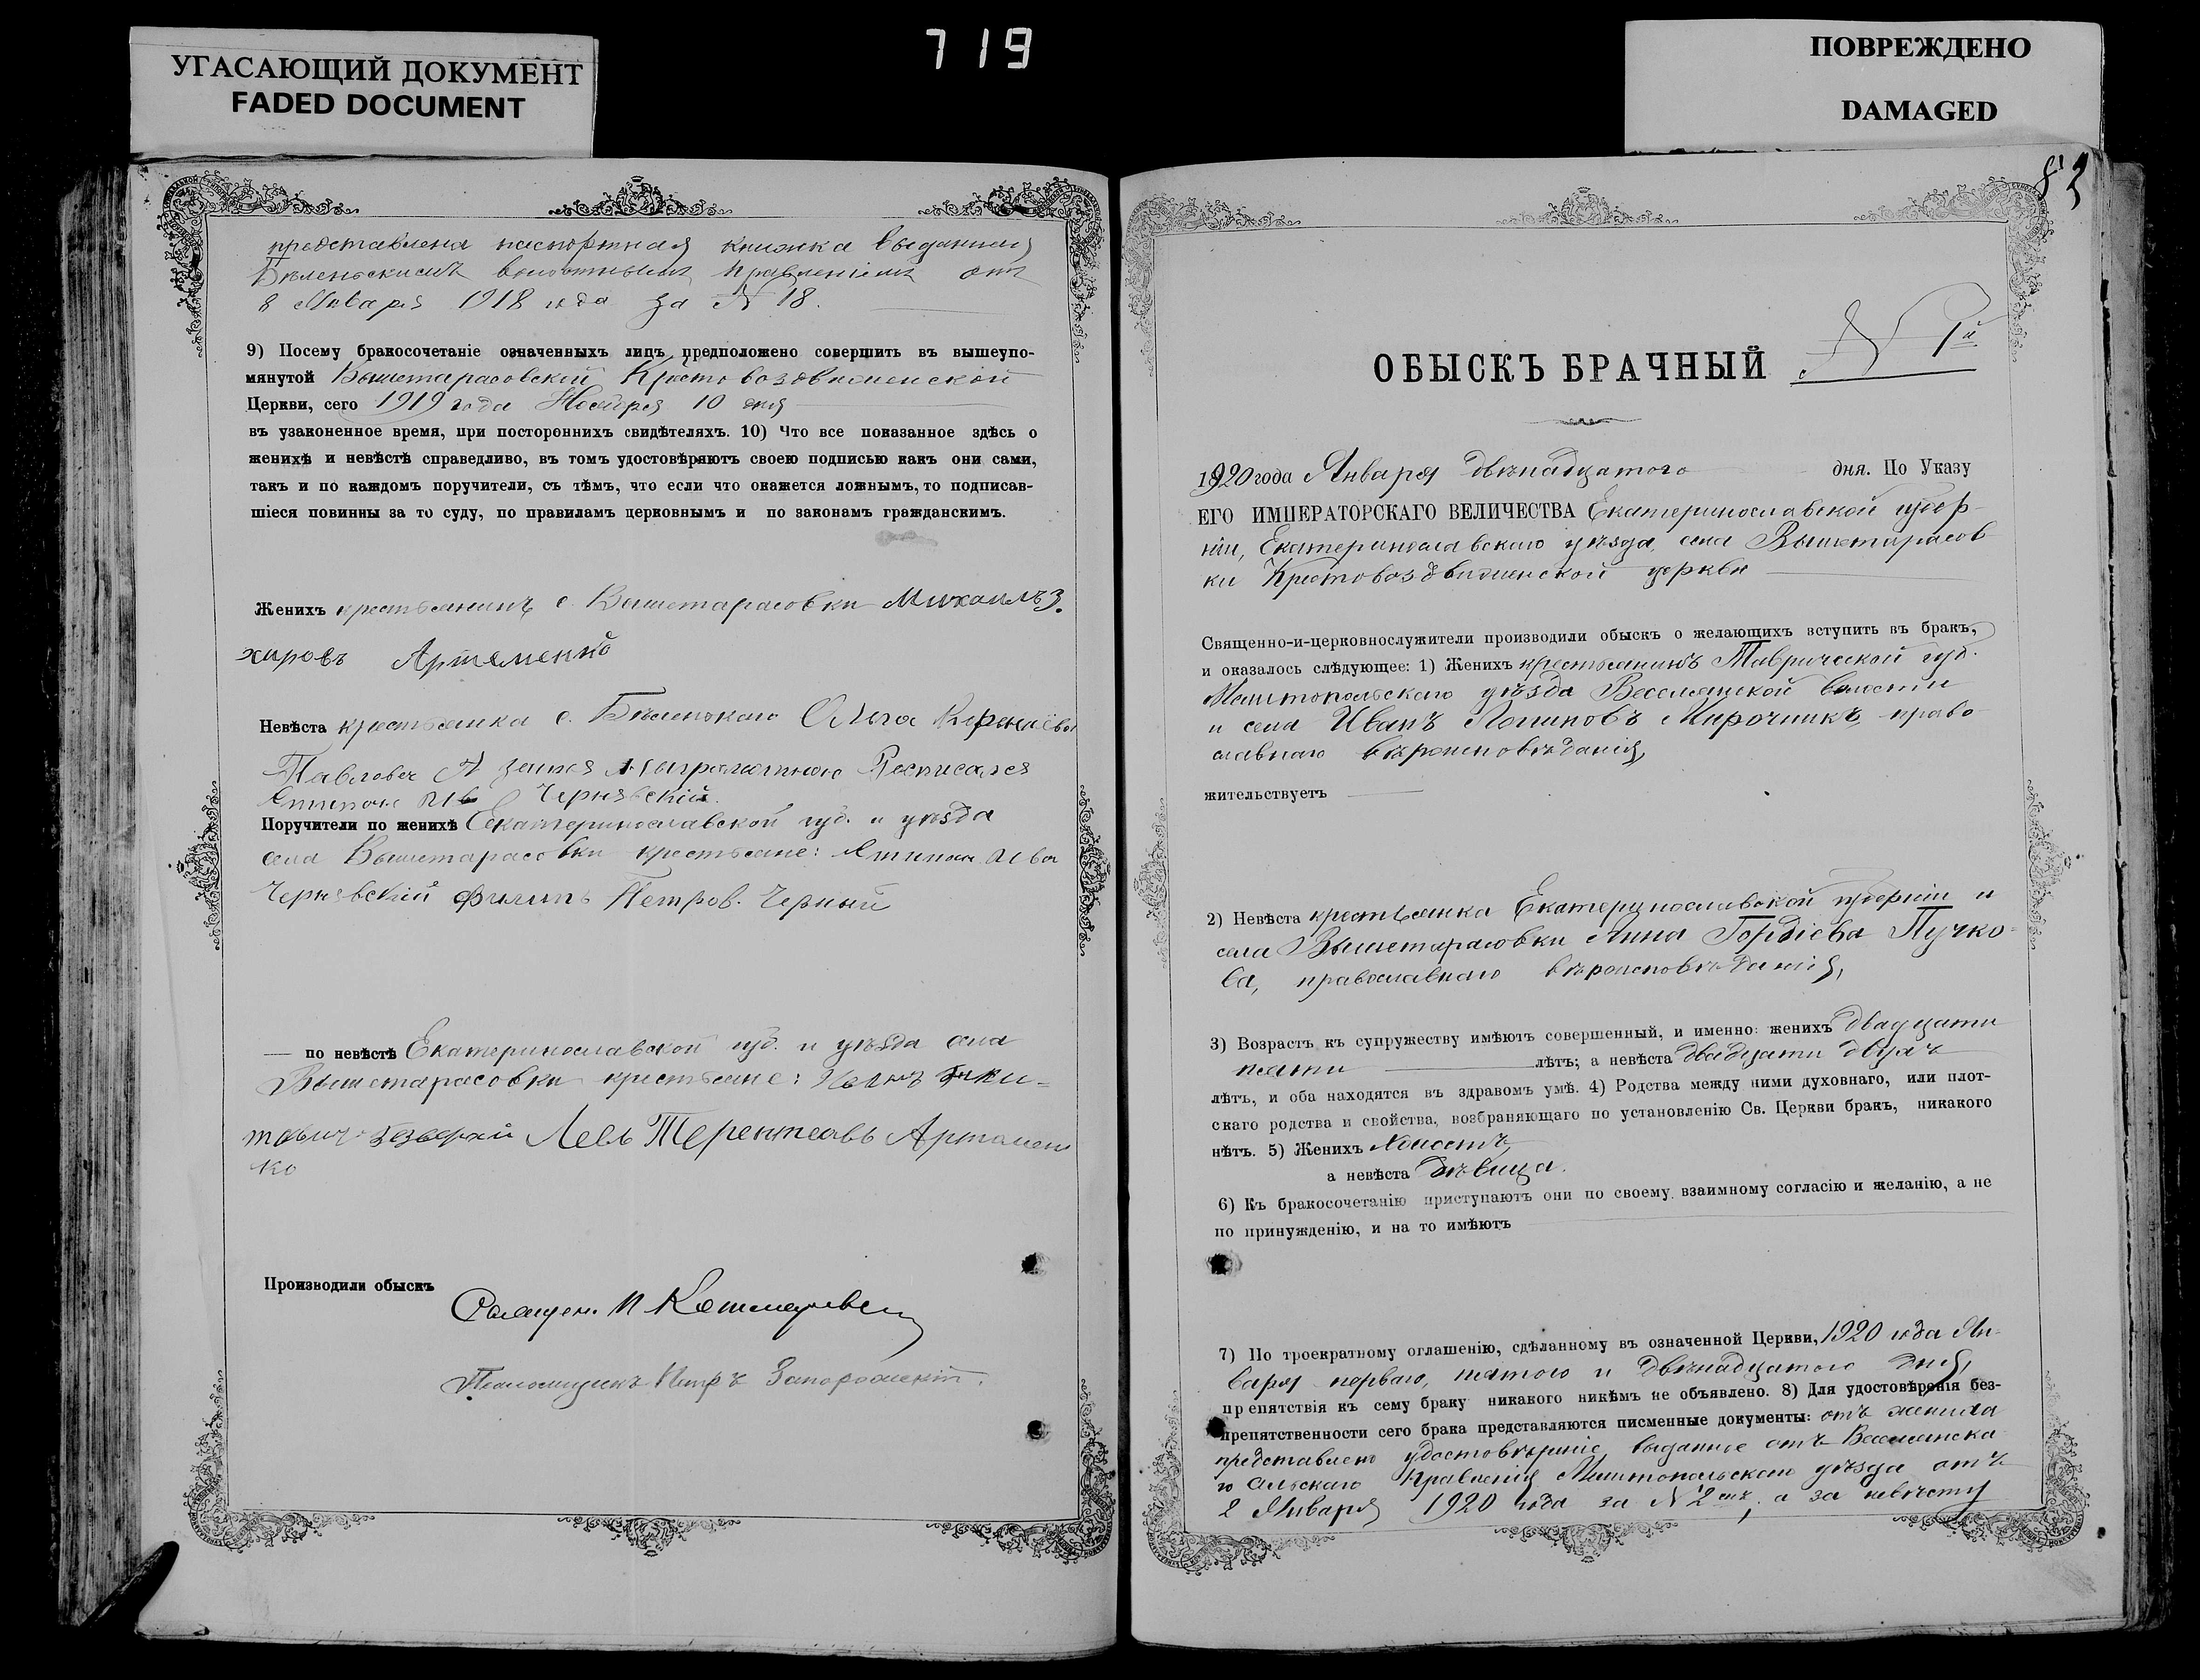 УГАСАЮЩИЙ ДОКУМЕНТ
FADED DOCUMENT
719
ПОВРЕЖДЕНО
DAMAGED
представлена паспортная книжка выданная
Бѣленьскимъ волостнымъ Правленіемъ отъ
8 Января 1918 года за № 18.
9) Посему бракосочетаніе означенныхъ лицъ предположено совершить въ вышеупо-
мянутой Вышетарасовской Крестовоздвиженской
Церкви, сего 1919 года Ноября 10 дня
въ узаконенное время, при постороннихъ свидѣтеляхъ. 10) Что все показанное здѣсь о
женихѣ и невѣстѣ справедливо, въ томъ удостовѣряютъ своею подписью какъ они сами,
такъ и по каждомъ поручители, съ тѣмъ, что если что окажется ложнымъ, то подписав-
шіеся повинны за то суду, по правиламъ церковнымъ и по законамъ гражданскимъ.
Женихъ крестьянинъ с. Вышетарасовки Михаилъ З.
харовъ Артеменко
Невѣста крестьянка с. Бѣленькаго Олга
Павлова А занея Росписался
Чернявскій
Поручители по женихѣ Екатеринославской губ. и уѣзда
села Вышетарасовки крестьяне:
Чернявскій Филипъ Петров. Черный
— по невѣстѣ Екатеринославской губ. и уѣзда села
Вышетарасовки крестьяне:
Левъ Терентеавъ Артамен
ко
Производили обыскъ
Священ. И
Псаломщикъ Петръ Запорожецъ.
83
ОБЫСКЪ БРАЧНЫЙ № 1й
1920 года Января двѣнадцатого дня. По Указу
ЕГО ИМПЕРАТОРСКАГО ВЕЛИЧЕСТВА Екатеринославской губер-
ніи, Екатеринославскаго уѣзда, села Вышетарасов
ки Крестовоздвиженской церкви
Священно-и-церковнослужители производили обыскъ о желающихъ вступить въ бракъ,
и оказалось слѣдующее: 1) Женихъ крестьянинъ Таврической губ.
Мелитопольскаго уѣзда Веселянской волости
и села Иванъ Логиновъ Мирочникъ, право-
славнаго вѣроисповѣданія,
жительствуетъ
2) Невѣста крестьянка Екатеринославской губерніи и
села Вышетарасовки Анна Гордіева Пучко-
ва, православнаго вѣроисповѣданія,
3) Возрастъ къ супружеству имѣютъ совершенный, и именно: женихъ двадцати
пяти лѣтъ; а невѣста двадцати двухъ
лѣтъ, и оба находятся въ здравомъ умѣ. 4) Родства между ними духовнаго, или плот-
скаго родства и свойства, возбраняющаго по установленію Св. Церкви бракъ, никакого
нѣтъ. 5) Женихъ холостъ,
а невѣста дѣвица.
6) Къ бракосочетанію приступаютъ они по своему взаимному согласію и желанію, а не
по принужденію, и на то имѣютъ
7) По троекратному оглашенію, сдѣланному въ означенной Церкви, 1920 года Ян-
варя перваго, пятого и двѣнадцатого дня,
препятствія къ сему браку никакого никѣмъ не объявлено. 8) Для удостовѣренія без-
препятственности сего брака представляются писменные документы: отъ жениха
представлено удостовѣреніе, выданное отъ Веселянска-
го сельскаго Правленія Мелитопольскаго уѣзда отъ
2 Января 1920 года за № 2 а за невѣсту